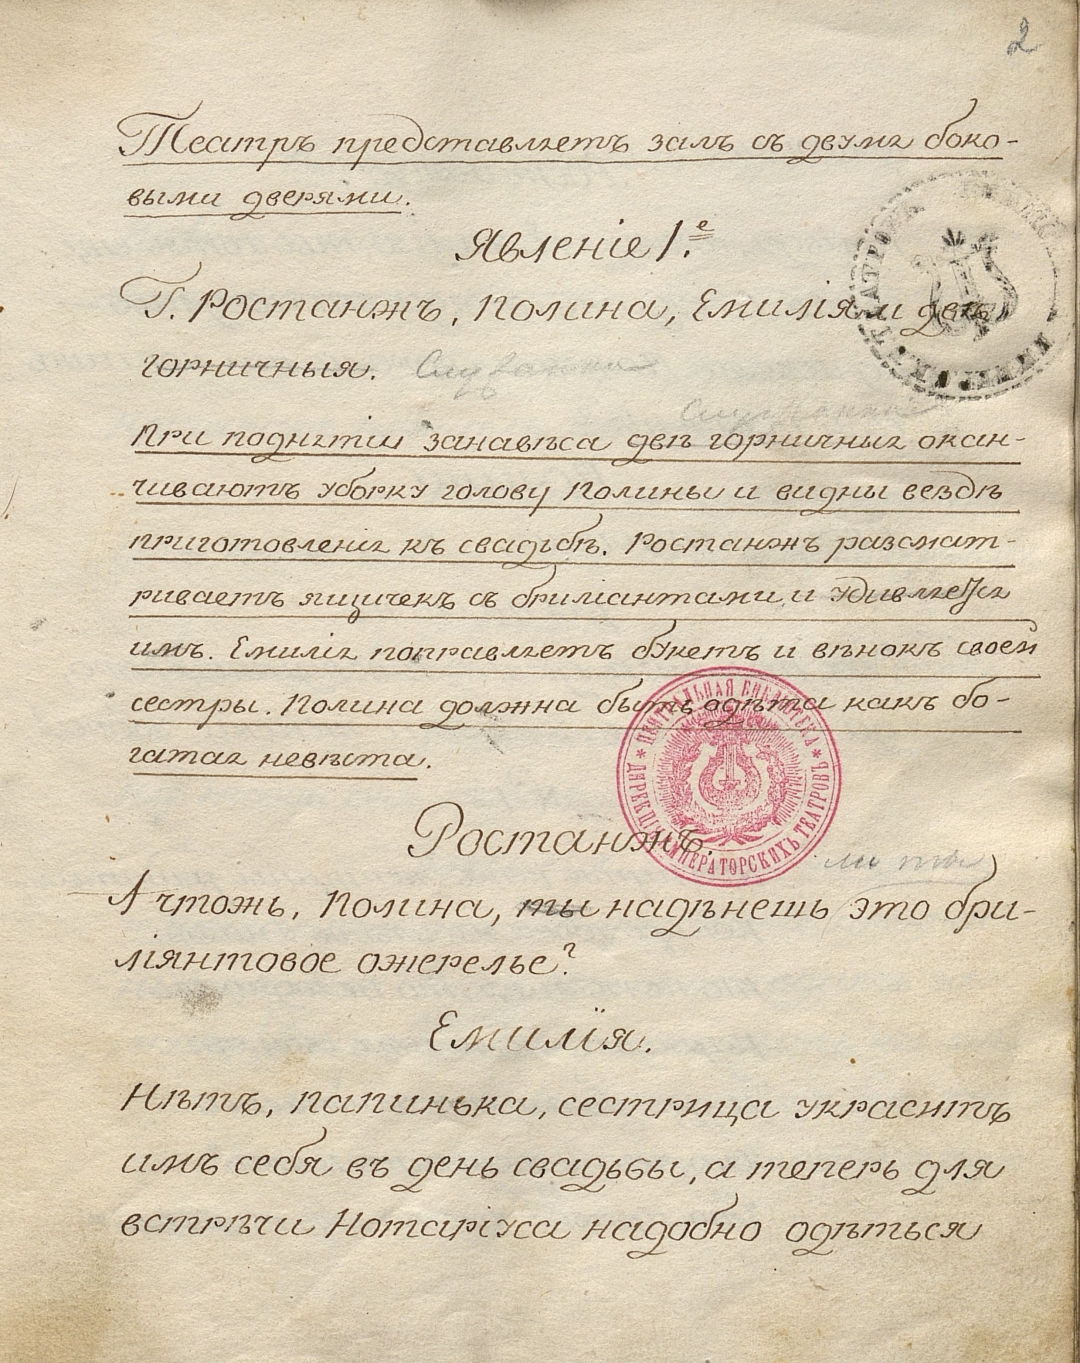 2
Театръ представляетъ залъ съ двумя боко-
выми дверями.
Явленіе 1.е
Г. Ростанжъ, Полина, Емилія и двѣ
горничныя. Служанки
Служанки
При поднятіи занавѣса двѣ горничныя окан-
чиваютъ уборку голову Полины и видны вездѣ
приготовленія къ свадьбѣ. Ростанжъ разсмат-
риваетъ ящичекъ съ бриліантами, и удивляется
имъ. Емилія поправляетъ букетъ и вѣнокъ своей
сестры. Полина должна быть одѣта какъ бо-
гатая невѣста.
ЦЕНТРАЛЬНАЯ БИБЛІОТЕКА
ДИРЕКЦІИ ИМПЕРАТОРСКИХЪ ТЕАТРОВЪ
Ростанжъ.
ли ты
А чтожь, Полина, ты надѣнешь это бри-
ліянтовое ожерелье?
Емилія.
Нѣтъ, папинька, сестрица украситъ
имъ себя въ день свадьбы, а теперь для
встрѣчи Нотаріуса надобно одѣться